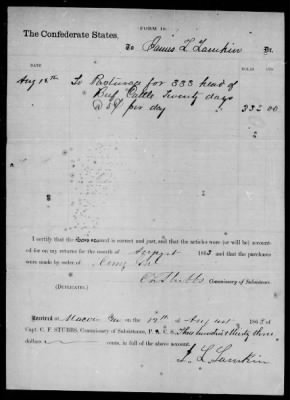 FORM 12.
The Confederate States,
To James L Lamkin Dr.
DATE DOLLS CTS
Aug 12th To Pasturage for 333 head of
Beef Cattle Twenty days
@ 5¢ per day 333 00
I certify that the account is correct and just, and that the articles were (or will be) account-
ed for on my returns for the month of August 1863 and that the purchases
were made by order of
C F Stubbs Commissary of Subsistence.
(DUPLICATE.)
Received at Macon Geo the 12th of August 1863 of
Capt. C. F. STUBBS, Commissary of Subsistence, P. A. C. S., Three hundred thirty three
dollars cents, in full of the above account.
J. L. Lamkin